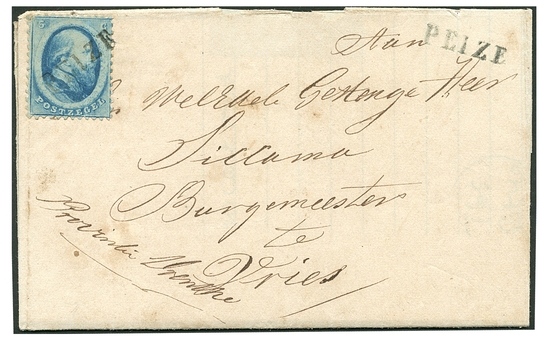 5
PEIZE
POSTZEGEL
PEIZE
Aan
Weledele Gestrenge Heer
Sillama
Burgemeester
te
Vries
Provintie Drenthe